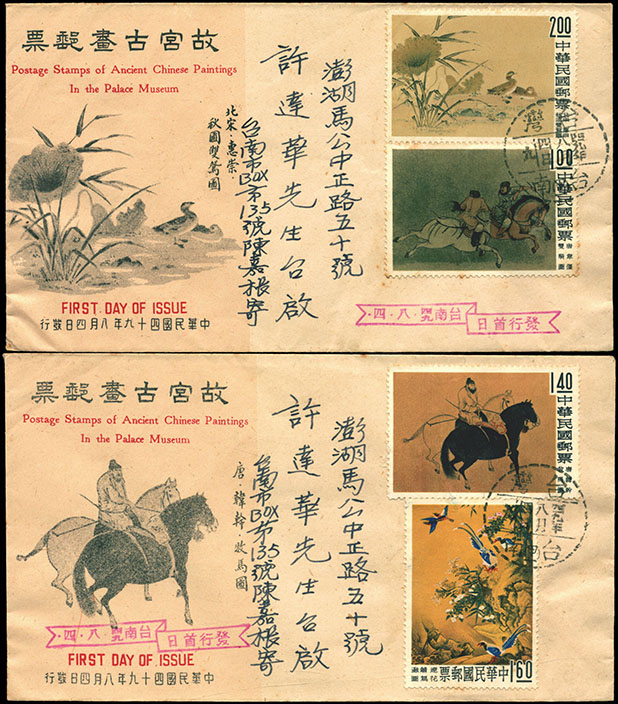 故宮古畫郵票
Postage Stamps of Ancient Chinese Paintings
In the Palace Museum
北宋·惠崇·
秋圃雙鴛圖
FIRST DAY OF ISSUE
中華民國四十九年八月四日發行
澎湖馬公中正路五十號
許達華先生台啟
台南市BOX第135號陳嘉根寄
2.00
中華民國郵票
1.00
中華民國郵票
台南 四九·八·四·
發行首日
故宮古畫郵票
Postage Stamps of Ancient Chinese Paintings
In the Palace Museum
唐·韓幹·牧馬圖
台南 四九·八·四·
發行首日
FIRST DAY OF ISSUE
中華民國四十九年八月四日發行
澎湖馬公中正路五十號
許達華先生台啟
台南市BOX第135號陳嘉根寄
1.40
中華民國郵票
中華民國郵票
1.60